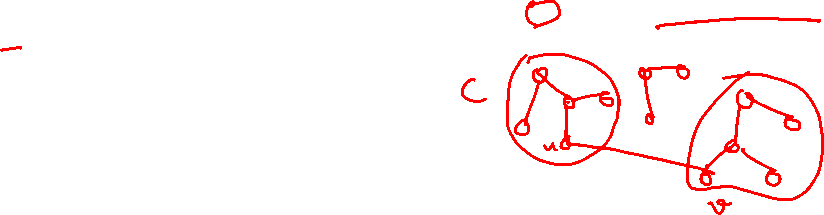 C
u
v